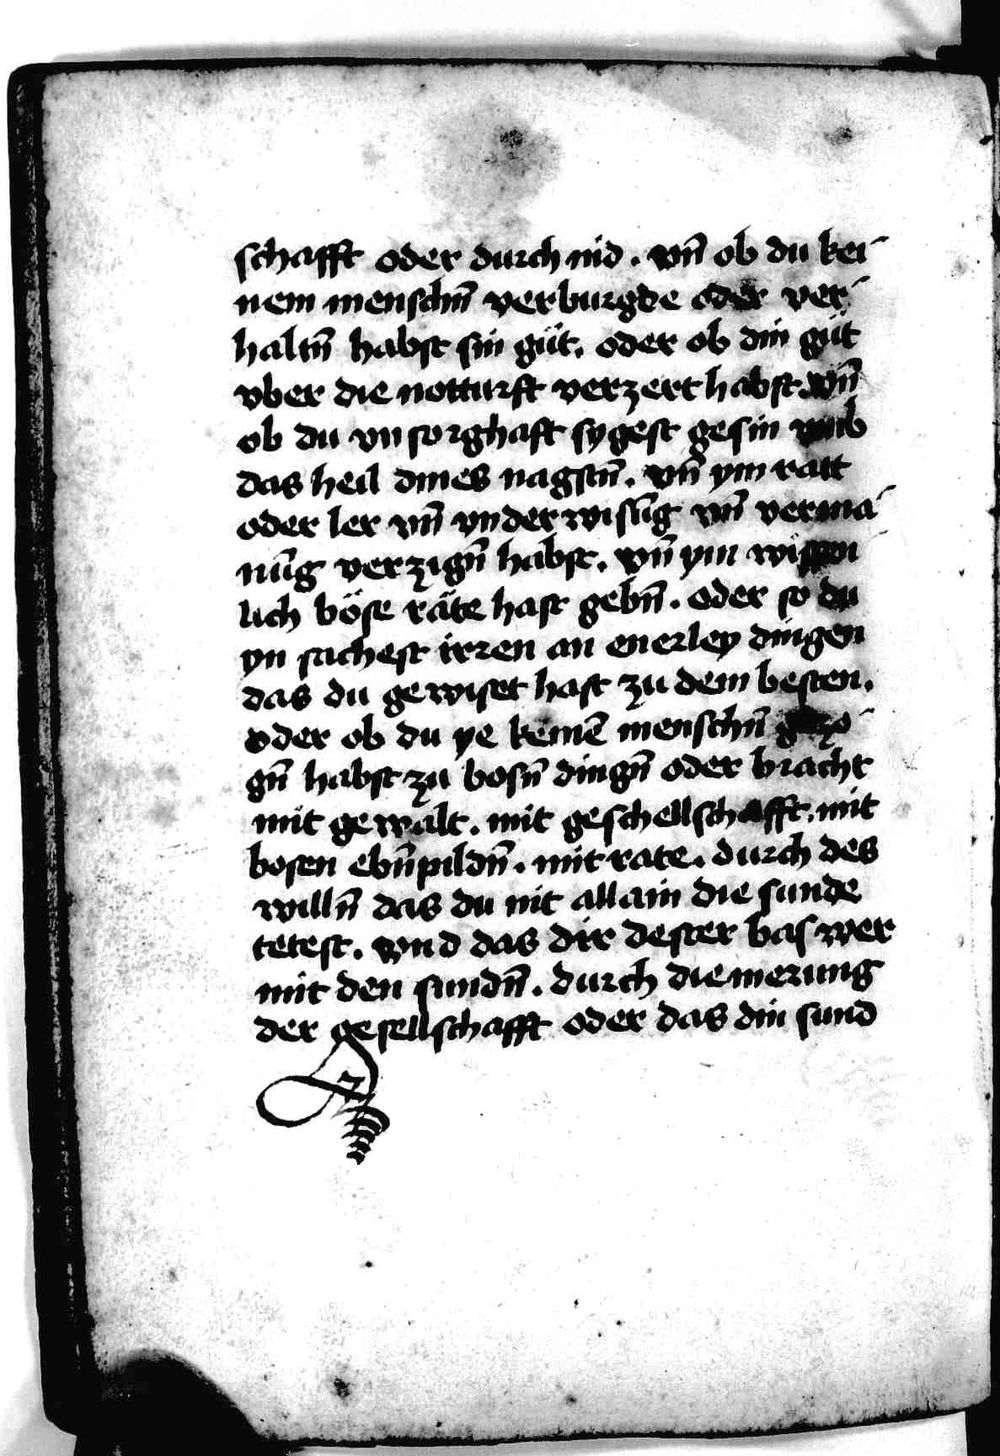 schafft oder durch nid . vn̄ ob du kei-
nem menschn̄ verburgde oder ver-
haltn̄ habst sin gůt. oder ob din gůt
vber die notturft verzert habst. vn̄
ob du vnsorghaft sygest gesin vmb
das heil dines nagstn̄. vn̄ ym ratt
oder ler vn̄ vnderwisūg vn̄ verma-
nūg verzign̄ habst. vn̄ ym wissen
lich böse räte hast gebn̄. oder so du
yn sachest irren an enerley dingen
das du gewiset hast zu dem besten.
oder ob du ye keinē menschn̄ gezo-
gn̄ habst zu bosn̄ dingn̄ oder bracht
mit gewalt. mit geschellschafft. mit
bosen ebn̄pildn̄. mit rate. durch des
willn̄ das du nit allain die sunde
tetest. vnd das dir dester bas wer
mit den sundn̄. durch die merung
der gesellschafft oder das din sund